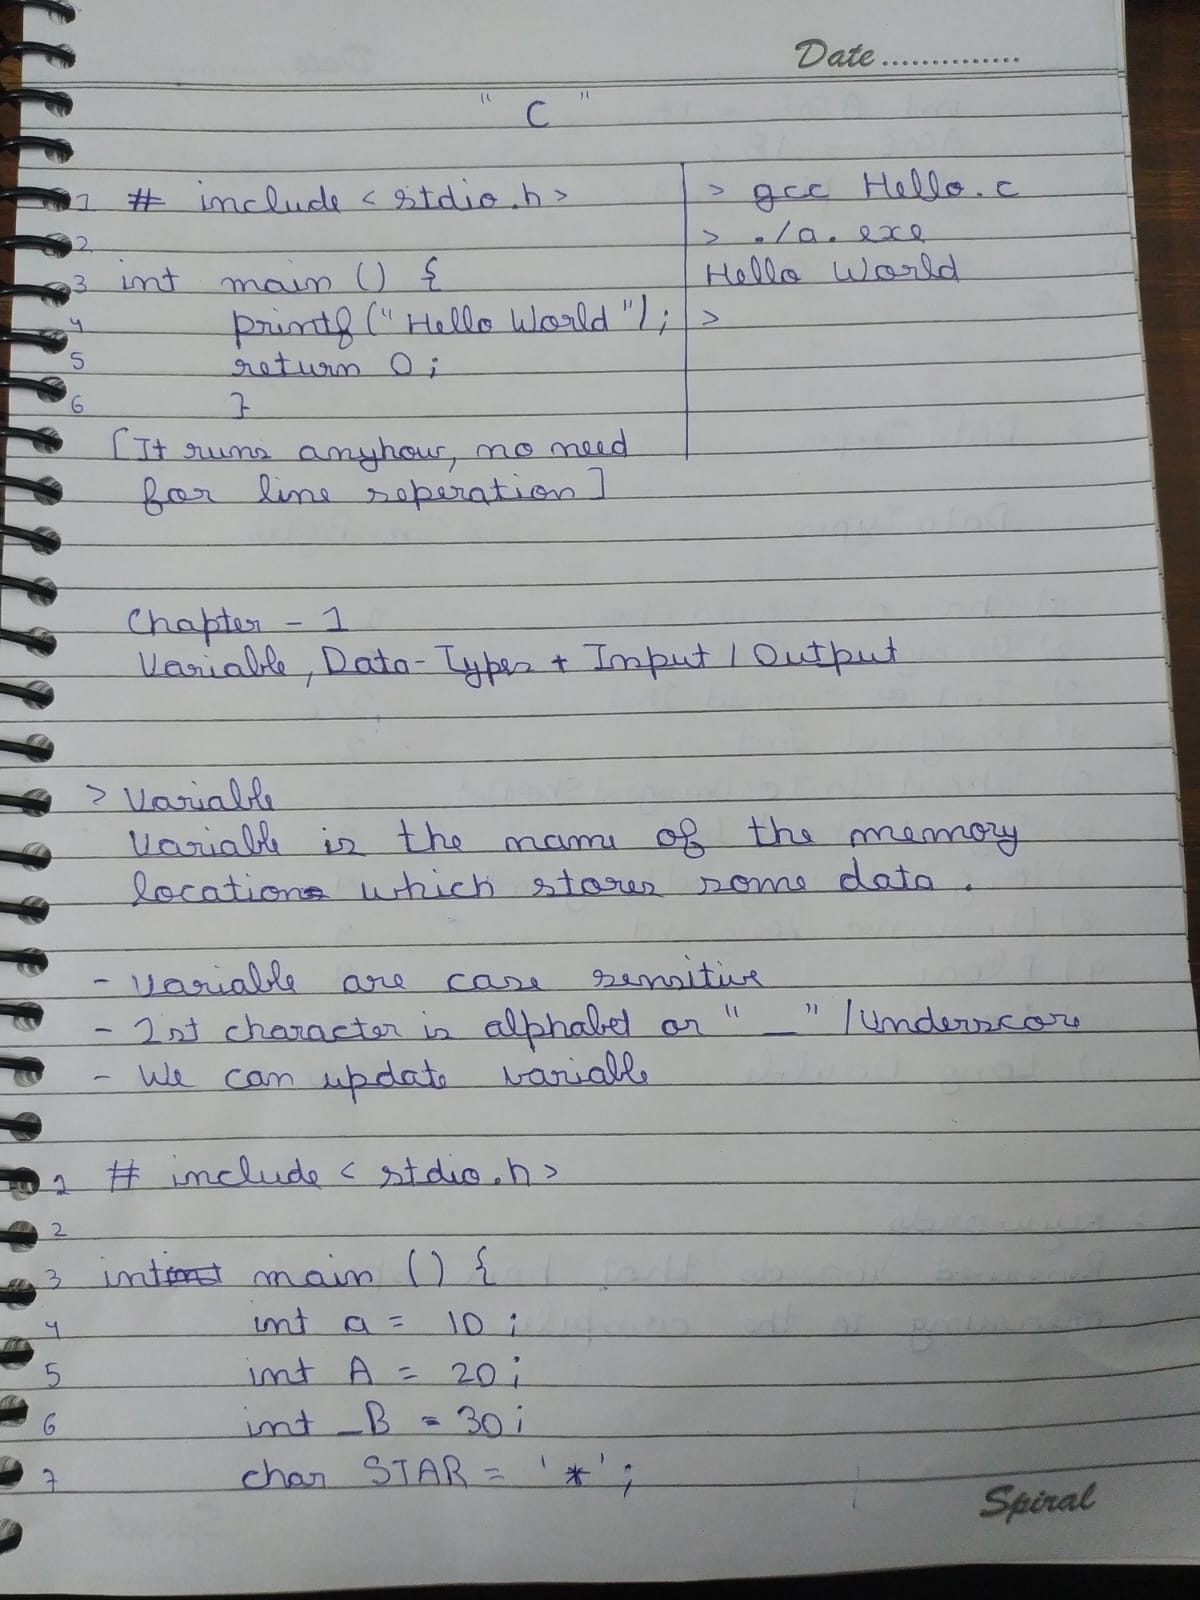 Date ..............
" C "
1 # include < stdio.h > > gcc Hello.c
2 > ./a.exe
3 int main () { Hello World
4 printf ("Hello World"); >
5 return 0 ;
6 }
[It runs anyhow, no need
for line seperation]
Chapter - 1
Variable, Data-Types + Input / Output
> Variable
Variable is the name of the memory
location which stores some data .
- Variable are case sensitive
- 1st character is alphabet or " _ " / Underscore
- We can update variable
1 # include < stdio.h >
2
3 int main () {
4 int a = 10 ;
5 int A = 20 ;
6 int _B = 30 ;
7 char STAR = '*' ;
Spiral